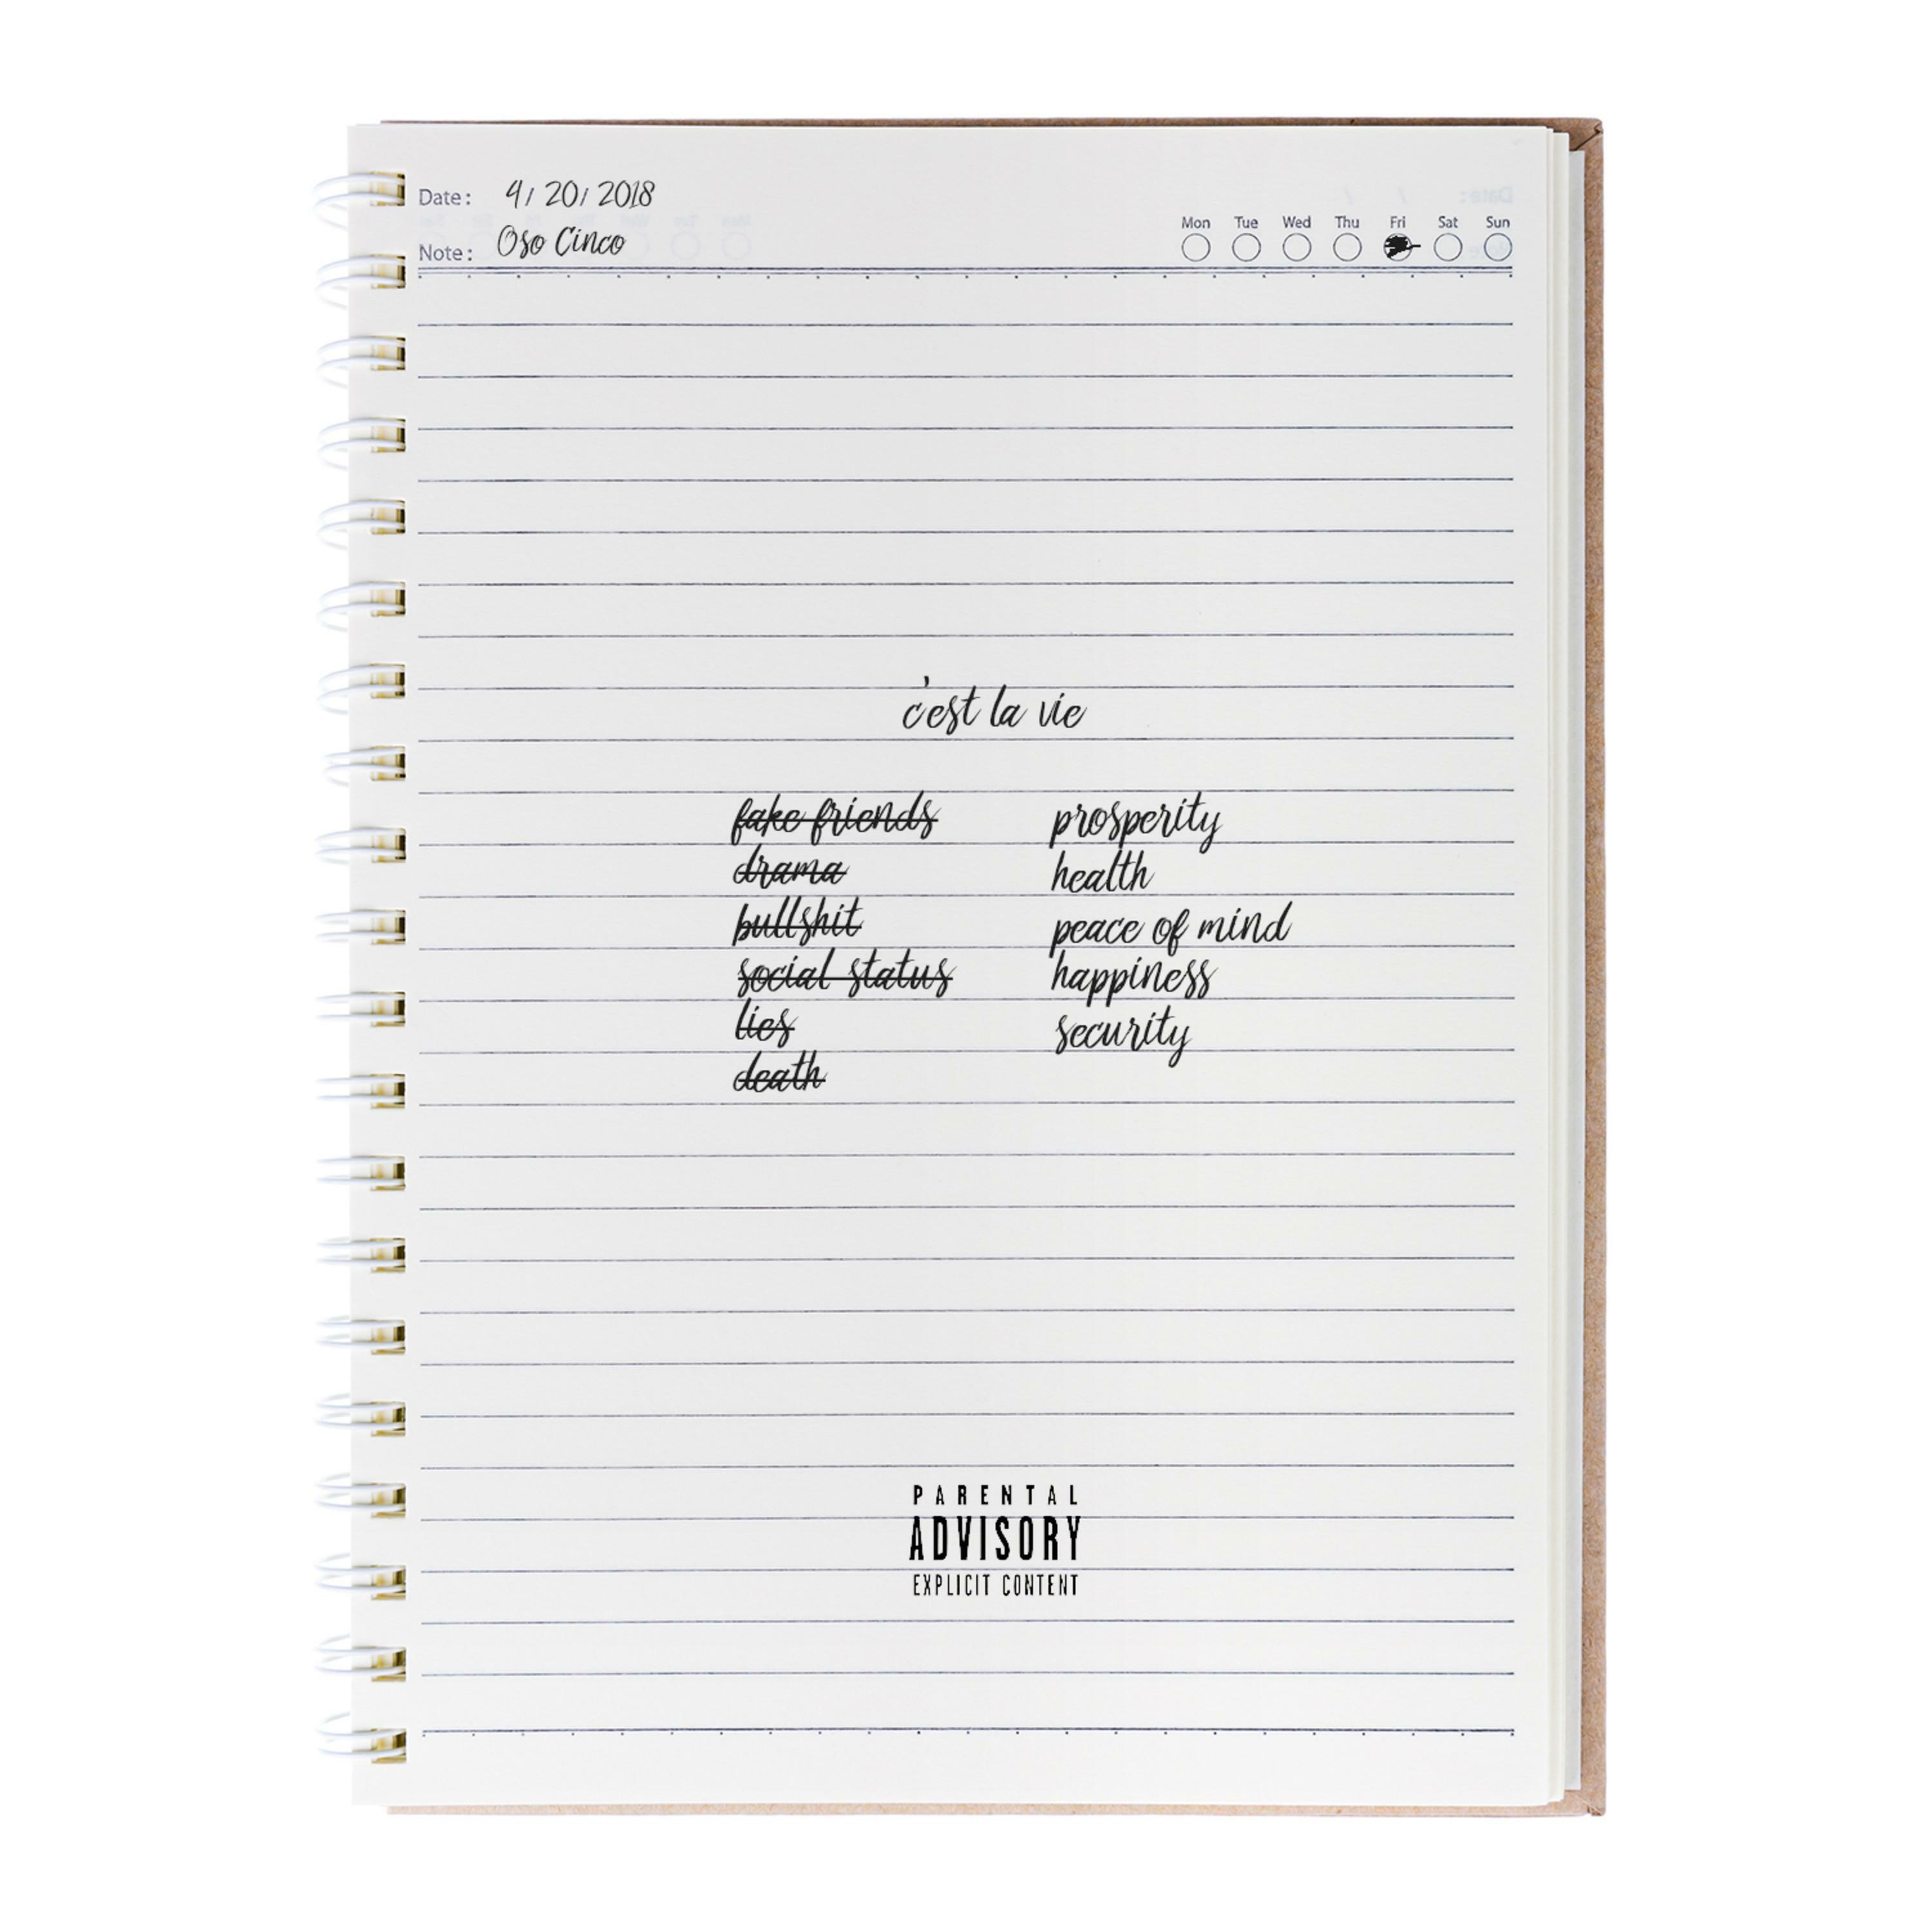 Date: 4/ 20/ 2018
Note: Oso Cinco
Mon Tue Wed Thu Fri Sat Sun
c'est la vie
fake friends
drama
bullshit
social status
lies
death
prosperity
health
peace of mind
happiness
security
PARENTAL
ADVISORY
EXPLICIT CONTENT